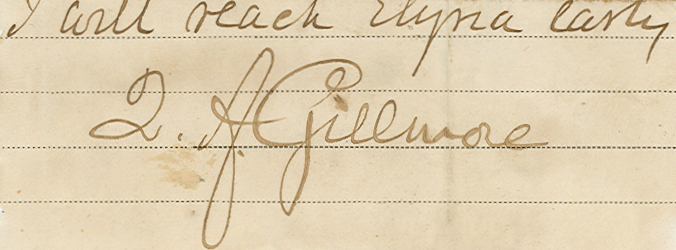 I will reach Elyria early
Q. A. Gillmore